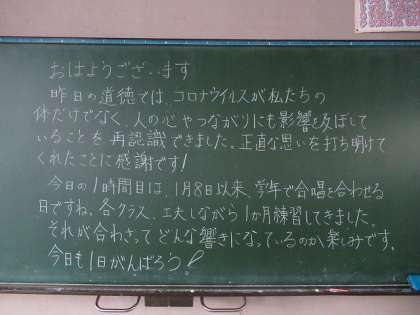 おはようございます
昨日の道徳では、コロナウイルスが私たちの
体だけでなく、人の心やつながりにも影響を及ぼして
いることを再認識できました。正直な思いを打ち明けて
くれたことに感謝です!
今日の1時間目は、1月8日以来、学年で合唱を合わせる
日ですね。各クラス、工夫しながら1か月練習してきました。
それが合わさってどんな響きになっているのか楽しみです。
今日も1日がんばろう!